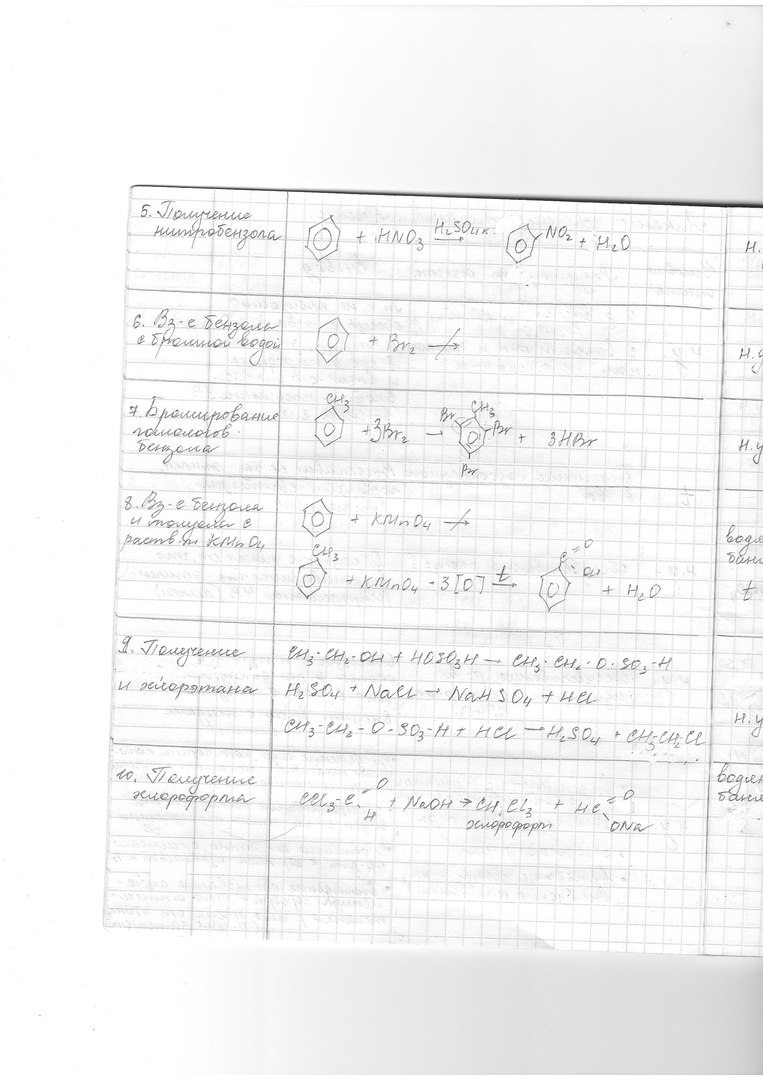 5. Получение
нитробензола
+ HNO3 H2SO4 к. → NO2 + H2O
Н.
6. Вз-е бензола
с бромной водой
+ Br2 ↛
н.у
7. Бромирование
гомологов
бензола
CH3 + 3Br2 → Br CH3 Br Br + 3HBr
н.у
8. Вз-е бензола
и толуола с
раств-м KMnO4
+ KMnO4 ↛
CH3 + KMnO4 - 3[O] t → C =O OH + H2O
водян
бан
t
9. Получение
и хлорэтана
CH3-CH2-OH + HOSO3H → CH3-CH2-O-SO3-H
H2SO4 + NaCl → NaHSO4 + HCl
CH3-CH2-O-SO3-H + HCl → H2SO4 + CH3-CH2Cl
н.у
10. Получение
хлороформа
CCl3-C =O H + NaOH → CHCl3 + HC =O ONa
хлороформ
водян
баня